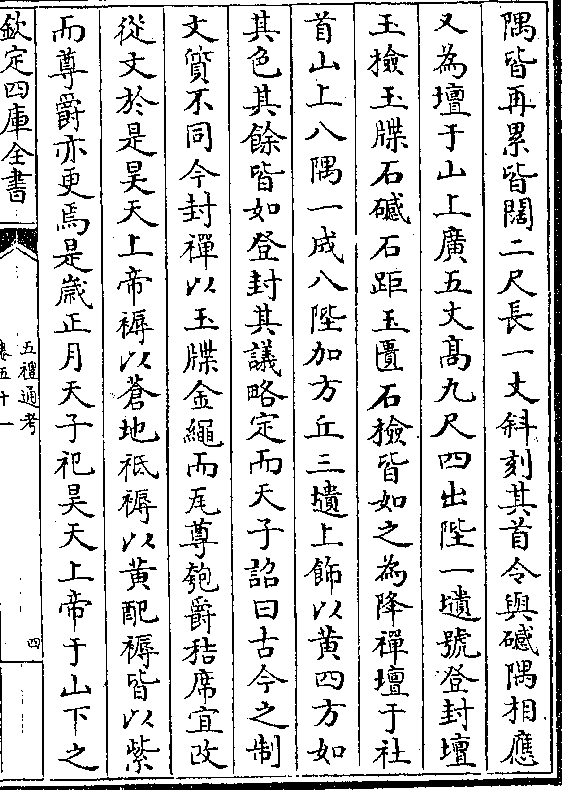 隅皆再累皆闊二尺長一丈斜刻其首令與䃭隅相應
又為壇于山上廣五丈髙九尺四出陛一壝號登封壇
玉檢玉牒石䃭石距玉匱石檢皆如之為降禪壇于社
首山上八隅一成八陛加方丘三壝上飾以黄四方如
其色其餘皆如登封其議略定而天子詔曰古今之制
文質不同今封禪以玉牒金繩而瓦尊匏爵秸席宜改
從文於是昊天上帝褥以蒼地祇褥以黄配褥皆以紫
而尊爵亦更焉是歲正月天子祀昊天上帝于山下之
欽定四庫全書
五禮通考
卷五十一
四